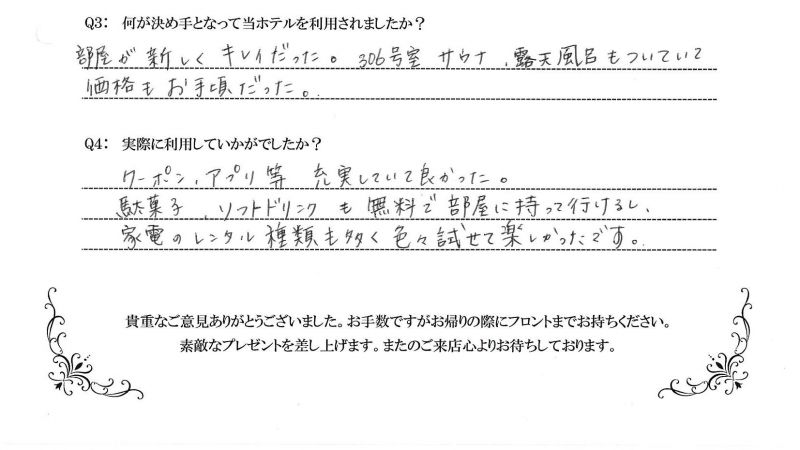 Q3: 何が決め手となって当ホテルを利用されましたか？
部屋が新しくキレイだった。306号室 サウナ、露天風呂もついていて
価格もお手頃だった。
Q4: 実際に利用していかがでしたか？
クーポン、アプリ等 充実していて良かった。
駄菓子、ソフトドリンクも無料で部屋に持って行けるし、
家電のレンタル種類も多く色々試せて楽しかったです。
貴重なご意見ありがとうございました。お手数ですがお帰りの際にフロントまでお持ちください。
素敵なプレゼントを差し上げます。またのご来店心よりお待ちしております。